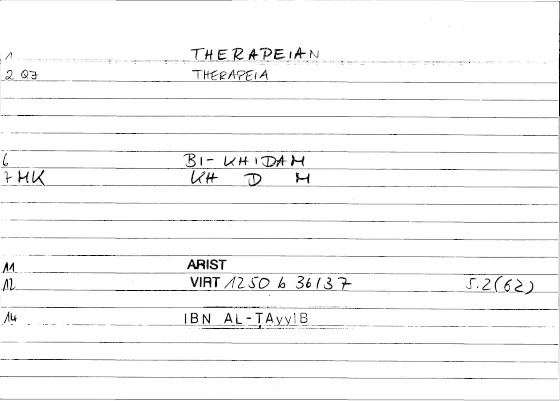 1 THERAPEIAN
2 Q7 THERAPEIA
6 BI- KHIDAM
7 MK KH D M
11 ARIST
12 VIRT 1250 b 36/37 5.2(62)
14 IBN AL-ṬAyyIB